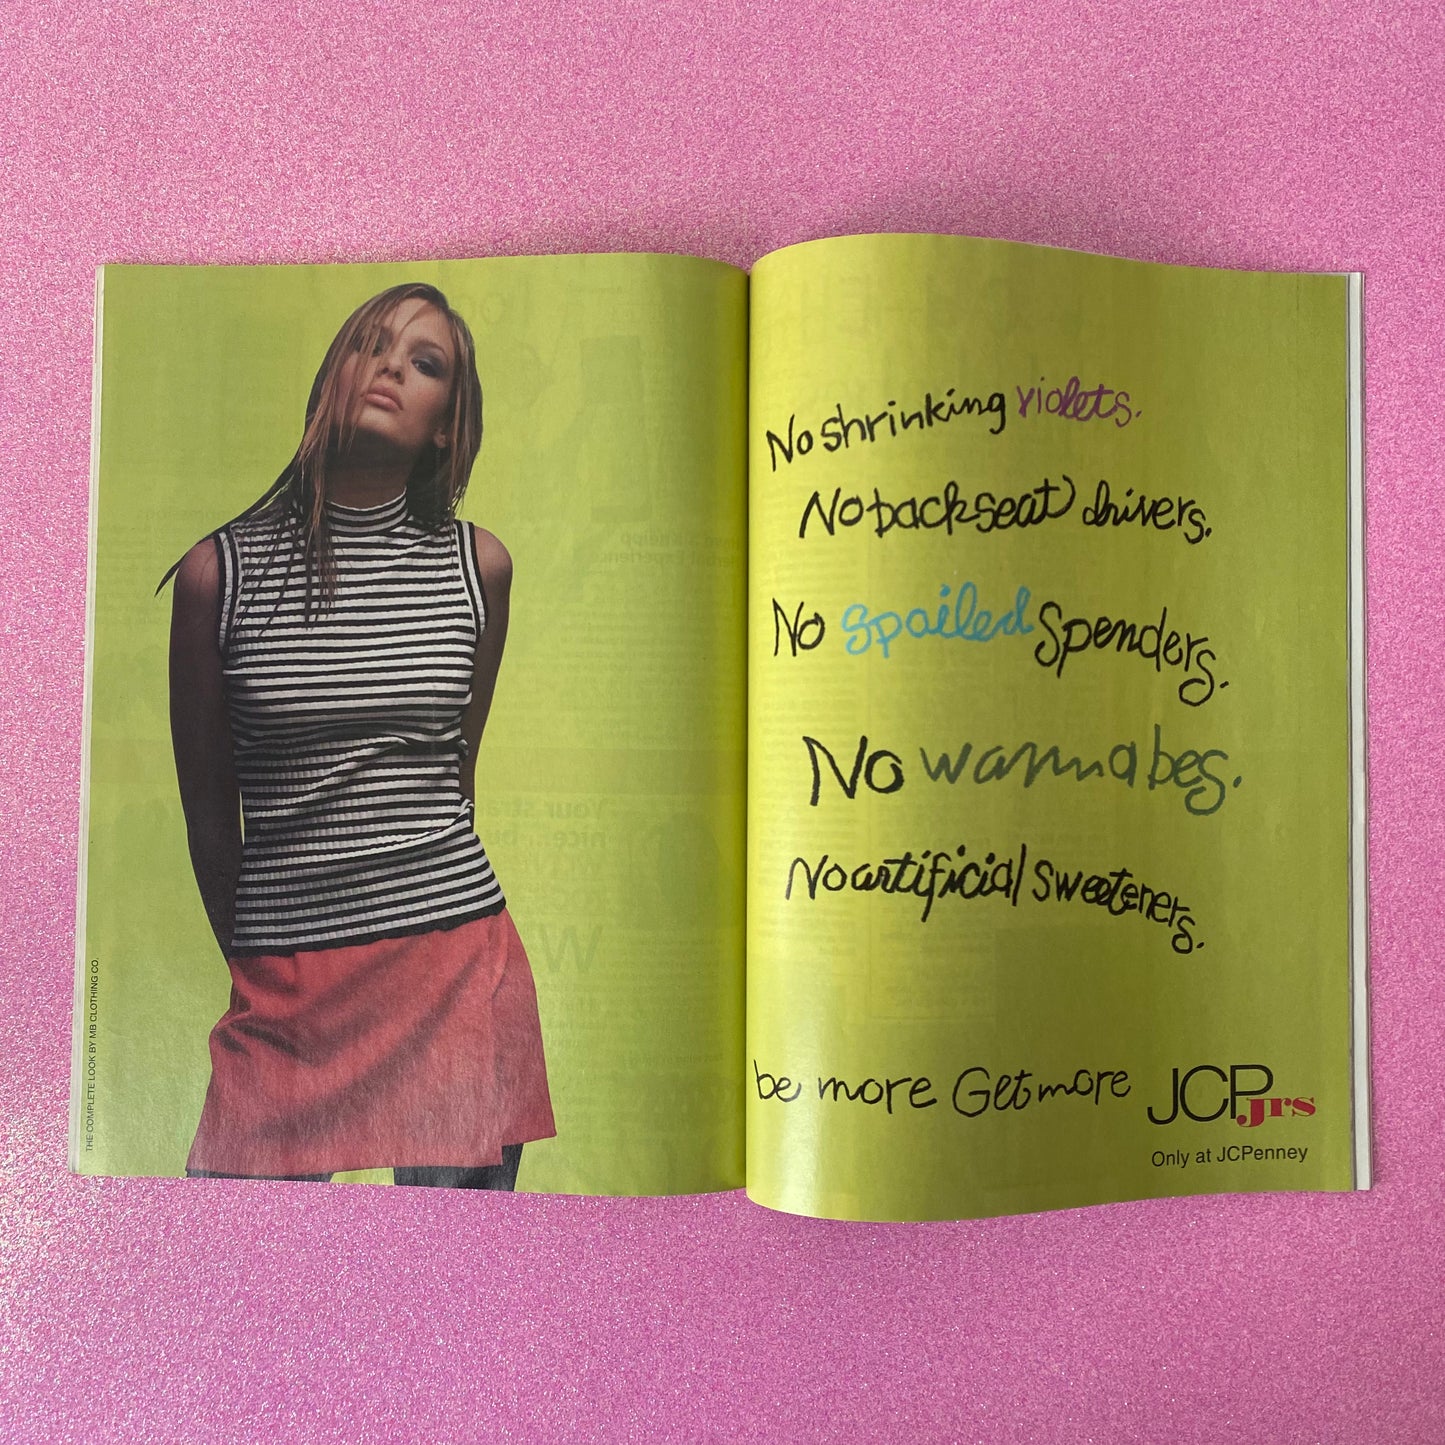 THE COMPLETE LOOK BY MB CLOTHING CO.
No shrinking violets.
No backseat drivers.
No spoiled spenders.
No wannabes.
No artificial sweeteners.
be more Get more JCP jrs
Only at JCPenney